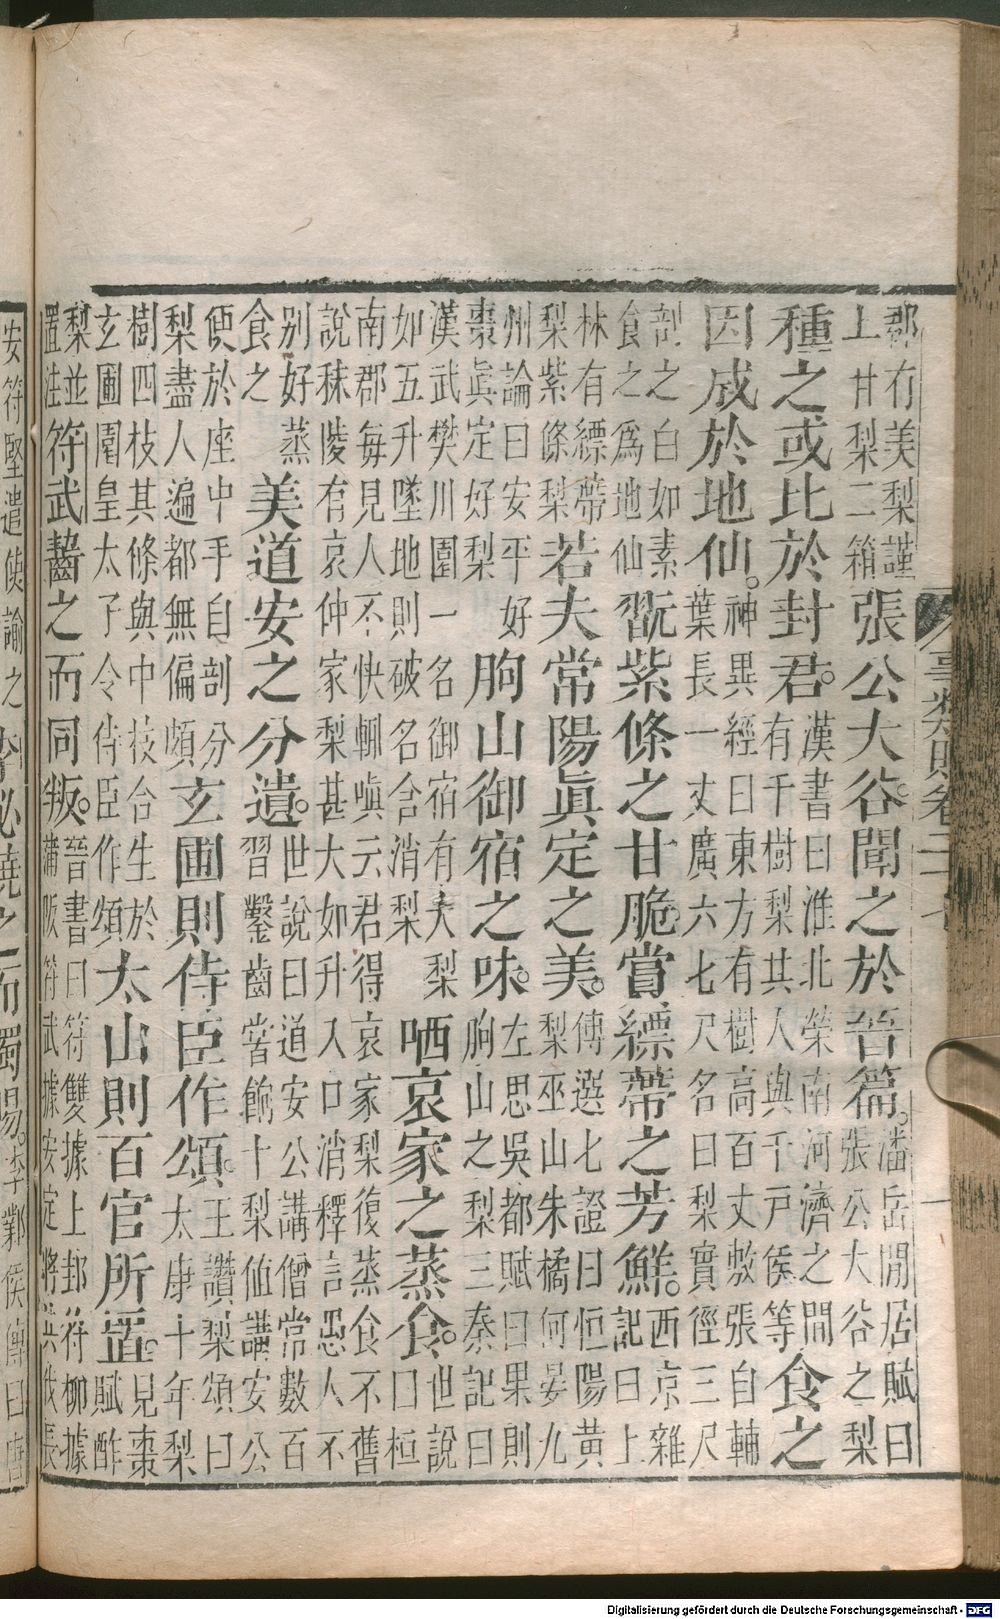 郡有美梨謹
上甘梨二箱
張公大谷聞之於晋篇。
潘岳閒居賦曰
張公大谷之梨
種之或比於封君。
漢書曰淮北滎南河濟之間
有千樹梨其人與千戶侯等
食之
因成於地仙。
神異經曰東方有樹高百丈敷張自輔
葉長一丈廣六七尺名曰梨實徑三尺
剖之白如素
食之爲地仙
翫紫條之甘脆。嘗縹蔕之芳鮮。
西京雜
記曰上
林有縹蔕
梨紫條梨
若夫常陽眞定之美。
傅選七證曰恒陽黃
梨巫山朱橘何晏九
州論曰安平好
棗眞定好梨
朐山御宿之味。
左思吳都賦曰果則
朐山之梨三秦記曰
漢武樊川園一名御宿有大梨
如五升墜地則破名含消梨
哂哀家之蒸食。
世說
曰桓
南郡每見人不快輒嗔云君得哀家梨復蒸食不舊
說秣陵有哀仲家梨甚大如升入口消釋言愚人不
別好蒸
食之
美道安之分遺。
世說曰道安公講僧常數百
習鑿齒嘗餉十梨値講安公
便於座中手自剖分
梨盡人遍都無偏頗
玄圃則侍臣作頌。
王讚梨頌曰
太康十年梨
樹四枝其條與中枝合生於
玄圃園皇太子令侍臣作頌
太山則百官所置。
見棗
賦酢
梨並
置注
符武齧之而同叛。
晉書曰符雙據上邽符柳據
蒲阪符武據安定將共伐長
安符堅遣使諭之
李鄴侯傳曰